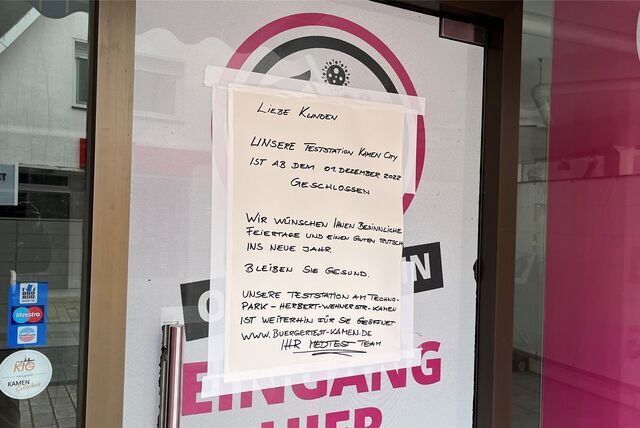 LIEBE KUNDEN
UNSERE TESTSTATION KAMEN CITY
IST AB DEM 01. DEZEMBER 2022
GESCHLOSSEN
WIR WÜNSCHEN IHNEN BESINNLICHE
FEIERTAGE UND EINEN GUTEN RUTSCH
INS NEUE JAHR.
BLEIBEN SIE GESUND.
UNSERE TESTSTATION AM TECHNO-
PARK - HERBERT-WEHNERSTR-KAMEN
IST WEITERHIN FÜR SIE GEÖFFNET
WWW.BUERGERTEST-KAMEN.DE
IHR MEDTEST TEAM
EINGANG
HIER
Maestro
KIG
KAMEN